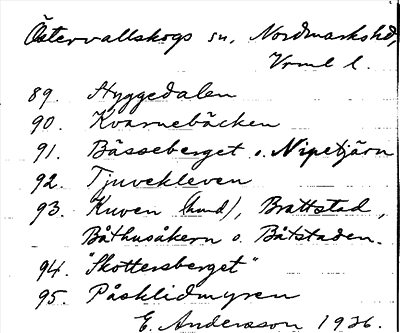 Östervallskogs sn, Nordmarks hd,
Vrml l.
89. Hyggedalen
90. Kvarnebäcken
91. Bässeberget o. Nipetjärn
92. Tjuvekleven
93. Kuven (hund), Brattstad,
Båthusåkern o. Båtstaden.
94. "Skottersberget"
95. Påsklidmyren
E. Andersson 1936.